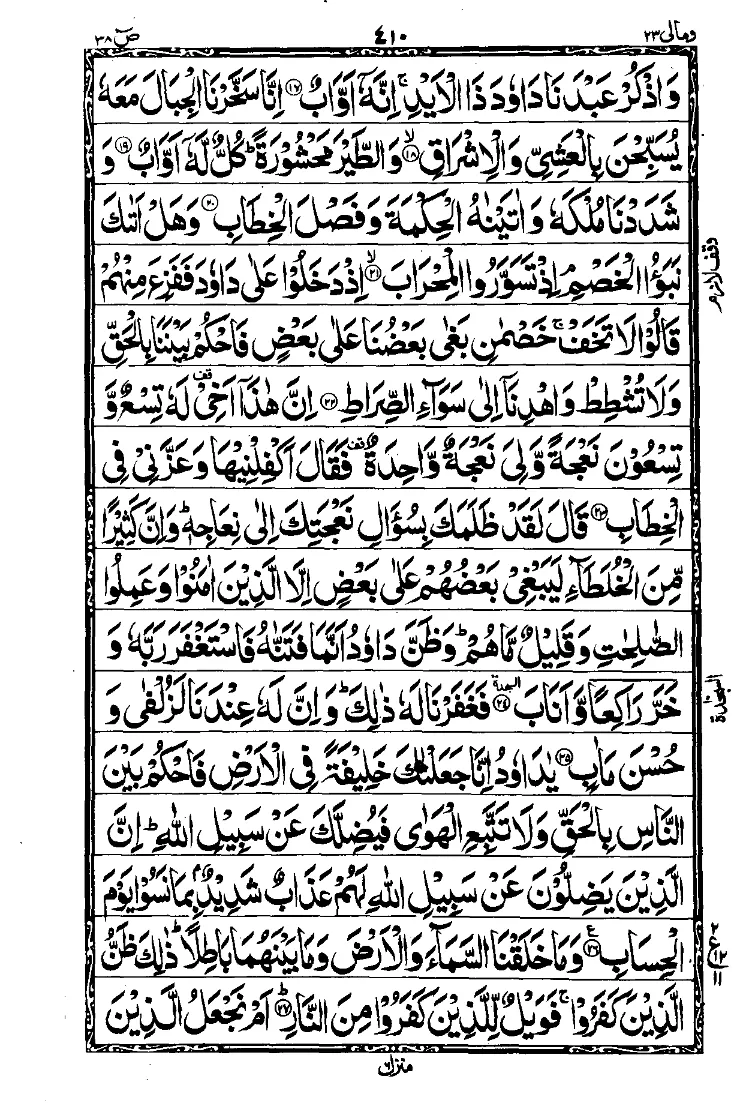 ومالی ٢٣ ٤١٠ صٓ ٣٨
وَاذْكُرْ عَبْدَنَا دَاوٗدَ ذَا الْاَيْدِ ۚ اِنَّهٗۤ اَوَّابٌ ﴿۱۷﴾ اِنَّا سَخَّرْنَا الْجِبَالَ مَعَهٗ
يُسَبِّحْنَ بِالْعَشِيِّ وَالْاِشْرَاقِ ﴿۱۸﴾ۙ وَالطَّيْرَ مَحْشُوْرَةً ؕ كُلٌّ لَّهٗۤ اَوَّابٌ ﴿۱۹﴾ وَ
شَدَدْنَا مُلْكَهٗ وَاٰتَيْنٰهُ الْحِكْمَةَ وَفَصْلَ الْخِطَابِ ﴿۲۰﴾ وَهَلْ اَتٰىكَ
نَبَؤُا الْخَصْمِ ۘ اِذْ تَسَوَّرُوا الْمِحْرَابَ ﴿۲۱﴾ۙ اِذْ دَخَلُوْا عَلٰى دَاوٗدَ فَفَزِعَ مِنْهُمْ
قَالُوْا لَا تَخَفْ ۚ خَصْمٰنِ بَغٰى بَعْضُنَا عَلٰى بَعْضٍ فَاحْكُمْ بَيْنَنَا بِالْحَقِّ
وَلَا تُشْطِطْ وَاهْدِنَاۤ اِلٰى سَوَآءِ الصِّرَاطِ ﴿۲۲﴾ اِنَّ هٰذَاۤ اَخِيْ ۫ لَهٗ تِسْعٌ وَّ
تِسْعُوْنَ نَعْجَةً وَّلِيَ نَعْجَةٌ وَّاحِدَةٌ ۫ فَقَالَ اَكْفِلْنِيْهَا وَعَزَّنِيْ فِي
الْخِطَابِ ﴿۲۳﴾ قَالَ لَقَدْ ظَلَمَكَ بِسُؤَالِ نَعْجَتِكَ اِلٰى نِعَاجِهٖ ؕ وَاِنَّ كَثِيْرًا
مِّنَ الْخُلَطَآءِ لَيَبْغِيْ بَعْضُهُمْ عَلٰى بَعْضٍ اِلَّا الَّذِيْنَ اٰمَنُوْا وَعَمِلُوا
الصّٰلِحٰتِ وَقَلِيْلٌ مَّا هُمْ ؕ وَظَنَّ دَاوٗدُ اَنَّمَا فَتَنّٰهُ فَاسْتَغْفَرَ رَبَّهٗ وَ
خَرَّ رَاكِعًا وَّاَنَابَ ﴿۲۴﴾ السجدة فَغَفَرْنَا لَهٗ ذٰلِكَ ؕ وَاِنَّ لَهٗ عِنْدَنَا لَزُلْفٰى وَ
حُسْنَ مَاٰبٍ ﴿۲۵﴾ يٰدَاوٗدُ اِنَّا جَعَلْنٰكَ خَلِيْفَةً فِي الْاَرْضِ فَاحْكُمْ بَيْنَ
النَّاسِ بِالْحَقِّ وَلَا تَتَّبِعِ الْهَوٰى فَيُضِلَّكَ عَنْ سَبِيْلِ اللّٰهِ ؕ اِنَّ
الَّذِيْنَ يَضِلُّوْنَ عَنْ سَبِيْلِ اللّٰهِ لَهُمْ عَذَابٌ شَدِيْدٌۢ بِمَا نَسُوْا يَوْمَ
الْحِسَابِ ﴿۲۶﴾ وَمَا خَلَقْنَا السَّمَآءَ وَالْاَرْضَ وَمَا بَيْنَهُمَا بَاطِلًا ؕ ذٰلِكَ ظَنُّ
الَّذِيْنَ كَفَرُوْا ۚ فَوَيْلٌ لِّلَّذِيْنَ كَفَرُوْا مِنَ النَّارِ ﴿۲۷﴾ؕ اَمْ نَجْعَلُ الَّذِيْنَ
وقف لازم
السجدة ١٠
ع ٢ ١٢ ١١
منزل ٦